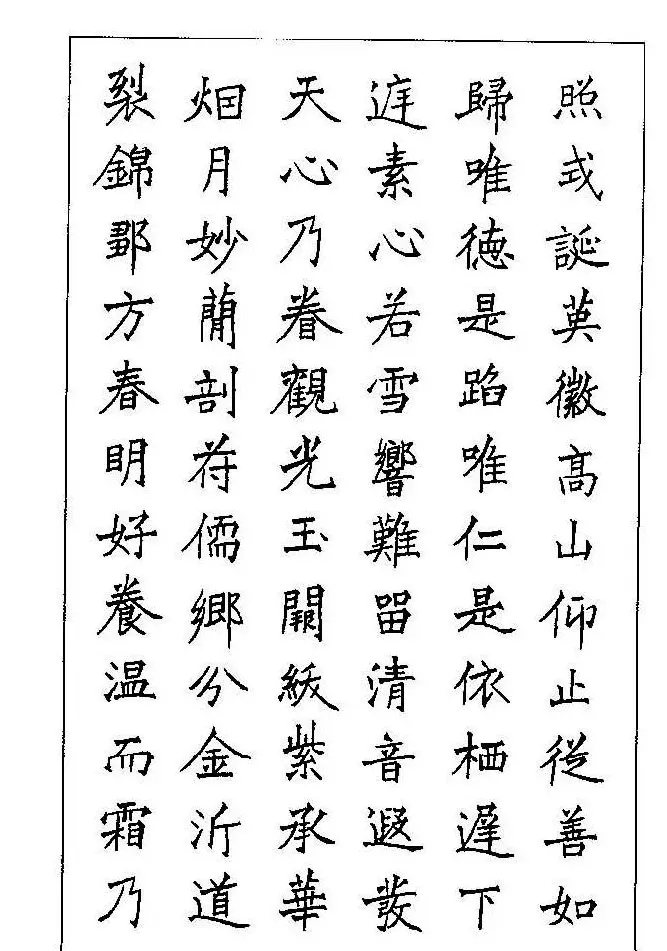 照或誕英徽高山仰止從善如
歸唯德是蹈唯仁是依栖遲下
遅素心若雪響難留清音遐發
天心乃眷觀光玉闕紱紫承華
烟月妙蘭剖符儒鄉分金沂道
裂錦鄩方春明好養温而霜乃